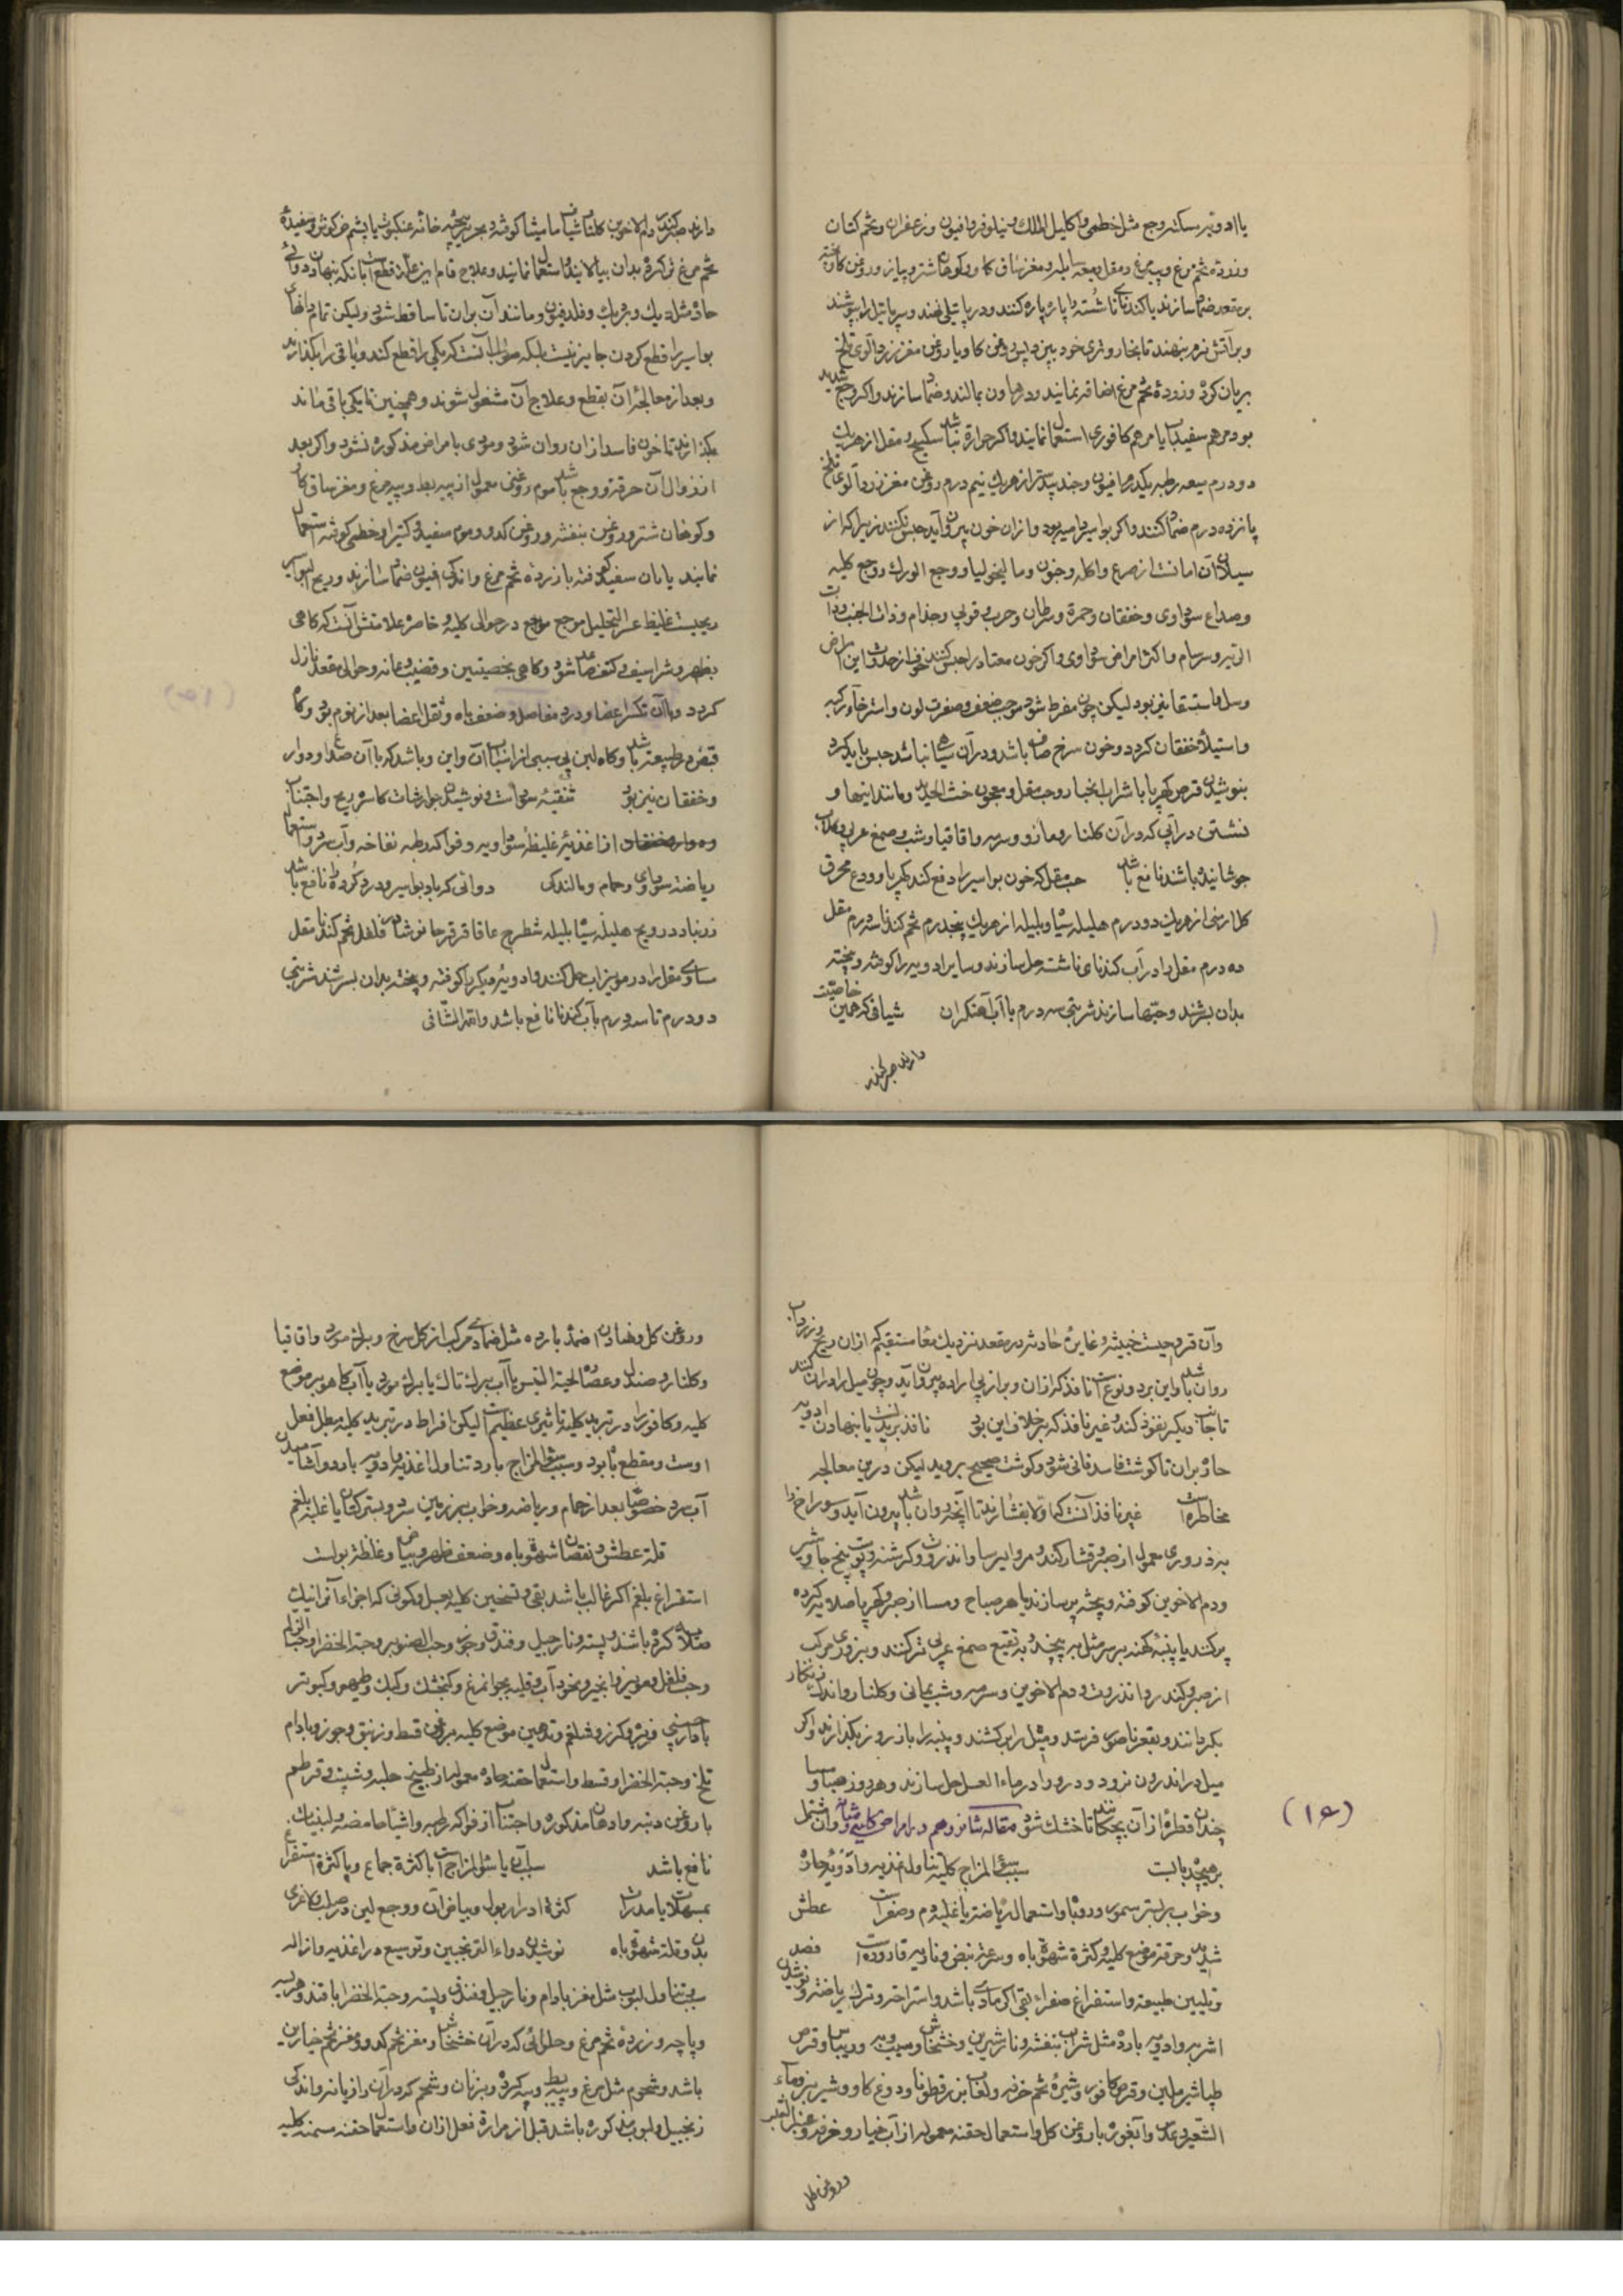 با ادویه مسکنه وجع مثل خطمی و اکلیل الملک و نیلوفر و افیون و زعفران و تخم کتان
وزرده تخم مرغ و پیه مرغ و مقل و میعه سایله و مغز ساق کاو و کوهان شتر و پیاز و روغن کاو پخته
بر مقعد ضماد سازند یا کندنای ناشسته را پاره پاره کنند و در پاتیلی نهند و سر پاتیل را بپوشند
و بر آتش نرم بنهند تا بخار و تری خود بپزد پس بروغن کاو و یا روغن مغز زردآلوی تلخ
بریان کرده وزرده تخم مرغ اضافه نمایند و در هاون بمالند و ضماد سازند و اکر وجع شدید
بود مرهم سفیداب یا مرهم کافوری استعمال نمایند و اکر حرارة نباشد سکبینج و مقل از هر یک
دو درم میعه رطبه یکدرم افیون و جند بیدستر از هر یک نیم درم روغن مغز زردآلوی تلخ
پانزده درم ضماد کنند و اکر بواسیر دامیه بود و ازان خون بیرون آید حبس نکنند زیرا که از
سیلان آن امانست از صرع و اکله و جنون و مالیخولیا و وجع الورک و وجع کلیه
وصداع سوداوی و خفقان و حمرة و سرطان و جرب و قوبی و جذام و ذات الجنب و ذات
الریه و سرسام و اکثر امراض سوداوی و اکر خون معتاد را حبس کنند خوف از حدوث این امراض
وسل و استسقا نیز بود لیکن چون مفرط شود موجب ضعف و صفرت لون و استرخاء رکبه
و استیلاء خفقان کردد و خون سرخ صاف باشد و در آن سیاهی نباشد حبس باید کرد
بنوشیدن قرص کهربا با شراب انجبار و حب مقل و معجون خبث الحدید و مانند اینها و
نشستن در آبی که در آن کلنار و مازو و سرمه و اقاقیا و شب و صمغ عربی و کلاب
جوشانیده باشند نافع باشد حب مقل که خون بواسیر را دفع کند کهربا و ودع محرق
کل ارمنی از هر یک دو درم هلیله سیاه و بلیله از هر یک پنجدرم تخم کندنا سه درم مقل
ده درم مقل را در آب کندنای ناشسته حل سازند و سایر ادویه را کوفته و پخته
بدان بسرشند و حبها سازند شربتی سه درم با آب آهنکران شیافی که همین خاصیت
دارند صبر کندر
دارند صبر کندر دم الاخوین کلنار شیاف مامیثا کوفته بحریر پیخته خانه عنکبوت یا پشم خرکوش و سفیده
تخم مرغ تر کرده بدان بیالایند و استعمال نمایند و علاج تام این علة قطعست یا بانکه بنهادن دوائی
حاد مثل دیک بر دیک و فلدفیون و مانند آن بران تا ساقط شود ولیکن تمام دانهای
بواسیر را قطع کردن جایز نیست بلکه صواب آنست که یکی را قطع کنند و باقی را بکذارند
وبعد از معالجه آن بقطع و علاج آن مشغول شوند و همچنین تا یکی باقی ماند
بکذارند تا خون فاسد ازان روان شود و مودی بامراض مذکوره نشود و اکر بعد
از زوال آن حرقة و وجع باشد موم روغنی معمول از پیه بط و پیه مرغ و مغز ساق کاو
و کوهان شتر و روغن بنفشه و روغن کدو و موم سفید و کتیرا و خطمی کوفته استعمال
نمایند یا نان سفید کوفته با زرده تخم مرغ و اندکی افیون ضماد سازند و ریح البواسیر
ریحیست غلیظ عسر التحلیل موجع در حوالی کلیه و خاصره علامتش آنست که کاهی
بظهر و شراسیف و کتف صاعد شود و کاهی بخصیتین و قضیب و عانه و حوالی مقعد نازل
کردد و با آن تکسر اعضا و درد مفاصل و ضعف باه و ثقل اعضا بعد از نوم بود و کاه
قبض در طبیعة باشد و کاه لین بی سببی از اسباب آن و این و باشد که با آن صداع و دوار
و خفقان نیز بود تنقیه سوداست و نوشیدن جوارشات کاسر ریح و اجتناب
از اغذیه غلیظه سوداویه و فواکه رطبه نفاخه و آب سرد و استعمال
ریاضه و حمام و مالندکی دوائی که باد بواسیر و درد کرده را نافع باشد
زرنباد درونج هلیله سیاه بلیله شطرج عاقرقرحا نوشادر فلفل تخم کندنا مقل
مساوی مقل را در مویزاب حل کنند و ادویه دیکر را کوفته و پخته بدان بسرشند شربتی
دو درم تا سه درم بآب کندنا نافع باشد والله الشافی
وآن قروحیست خبیثه و غایره حادثه در مقعد نزدیک معاء مستقیم که ازان ریح و زردآب
روان باشد و این بر دو نوعست نافذ که ازان و براز بی اراده بیرون آید و چون میل را دران کنند
تا جانب دیکر نفوذ کند و غیر نافذ که بر خلاف این بود نافذ بریدنست یا بنهادن ادویه
حاد بران تا کوشت فاسد فانی شود و کوشت صحیح بروید لیکن درین معالجه
مخاطره است غیر نافذ آنست که اولا بفشارند تا آنچه دران باشد بیرون آید و سوراخ را
بذروری معمول از صبر و قشار کندر و مردارسنا و انزروت و کرشنه و پوست بیخ جاوشیر
ودم الاخوین کوفته و پخته پر سازند یا هر صباح و مسا از صبر و کهربا صلایه کرده
پر کنند یا پنبه کهنه بر سر میل پیچند و به نقیع صمغ عربی تر کنند و بذروری مرکب
از صبر و کندر و انزروت و دم الاخوین و سرمه و شب یمانی و کلنار و اندک زنکار
بکردانند و بقعر ناصور فرستند و میل را برکشند و پنبه را باز روز بکذارند و اکر
میل در اندرون نرود و درور را در ماء العسل حل سازند و هر روز صباح و مسا
چند قطره از آن بچکانند تا خشک شود مقاله شانزدهم در امراض کلیتین و مثانه و آن مشتمل
بر هیجده بابست سبب سوء المزاج کلیه تناول اغذیه و ادویه حاده
و خواب بر بستر سمور و دیبا و استعمال ریاضه یا غلبه دم و صفراست عطش
شدید و حرقة موضع کلیه و کثرة شهوة باه و سرعة نبض و ناریه قاروره است فصد
و تلیین طبیعة و استفراغ صفراء بقی اکر مادی باشد و استراحة و ترک ریاضة و نوشیدن
اشربه و ادویه بارده مثل شراب بنفشه و نار شیرین و خشخاش و سیب و به و ریباس و قرص
طباشیر ملین و قرص کافور و شیره تخم خرفه و لعاب بزرقطونا و دوغ کاو و شیر بز و ماء
الشعیر و عدس و آبغوره با روغن کل و استعمال حقنه معموله از آب خیار و خرفه و عنب الثعلب
و روغن کل
(۱۶)
و روغن کل و نهادن اضمده بارده مثل ضمادی مرکب از کل سرخ و برک مورد و اقاقیا
و کلنار و صندل و عصاره لحیة التیس با آب برک تاک یا برک مورد یا آب کاهو بر موضع
کلیه و کافور را در تبرید کلیه تاثیری عظیمست لیکن افراط در تبرید کلیه مبطل فعل
اوست و مقطع باه بود و سبب سوء المزاج بارد تناول اغذیه و ادویه بارد و آشامیدن
آب سرد خصوصا بعد از حمام و ریاضه و خواب بر زمین سرد و بستر کتان یا غلبه بلغم
قلة عطش و نقصان شهوة باه و ضعف ظهر و بیاض و غلظة بولست
استفراغ بلغم اکر غالب باشد بقی و تسخین کلیه بعسل و کمونی که اجزاء آنرا نیک
صلایه کرده باشند و پسته و نارجیل و فندق و جوز و حب الصنوبر و حبة الخضرا و حب الزلم
و حب فلفل و مویز و انجیر و نخودآب و قلیه بجوانمرغ و کنجشک و کبک و طیهو و کبوتر
با دارچینی و زیره و کرز و شلغم و تدهین موضع کلیه بروغن قسط و زنبق و جوز و بادام
تلخ و حبة الخضرا و قسط و استعمال حقنه حاده معموله از طبیخ حلبه و شبت و قرطم
با روغن دنبه و ادهان مذکوره و اجتناب از فواکه رطبه و اشیاء حامضه و لبنیات
نافع باشد سبب آن یا سوء المزاجست یا کثرة جماع و یا کثرة استفراغ
بمسهلات یا مدرات کثرة ادرار بول و بیاض آن و وجع لین در صلب و لاغری
بدن و قلة شهوة باه نوشیدن دواء الترنجبین و توسیع در اغذیه و ازاله
سبب و تناول لبوب مثل مغز بادام و نارجیل و فندق و پسته و حبة الخضرا با قند و هریسه
و پاچه و زرده تخم مرغ و حلوائی که در آن خشخاش و مغز تخم کدو و مغز تخم خیارین
باشد و شحوم مثل مرغ و پیه بط و پیه کرده و بزنان و شحم که در آن رازیانه و اندکی
زنجبیل و لبوب مذکوره باشد قبل از مرارة فعل ازان و استعمال حقنه مسمنه کلیه